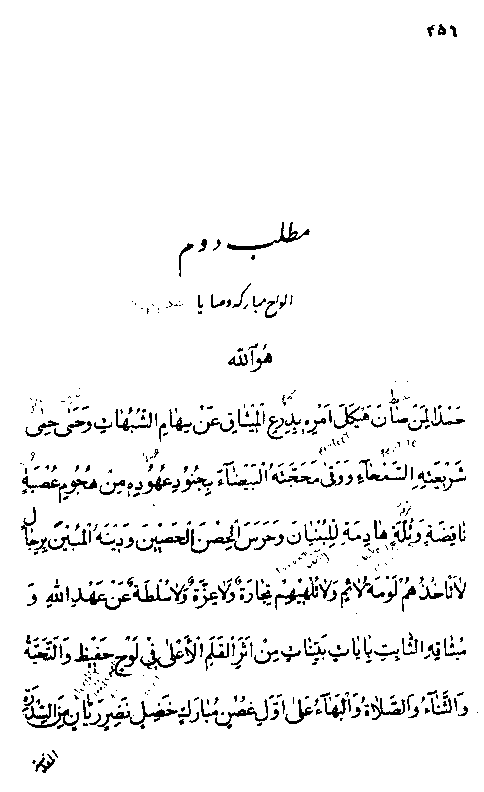 ۴۵۶
مطلب دوم
الواح مباركه وصايا
هُوَاللّه
حَمْدًا لِمَنْ صَانَ هَيْكَلَ اَمْرِهِ بِدِرْعِ الْمِيثَاقِ عَنْ سِهَامِ الشُّبُهَاتِ وَحَمَى حِمَى
شَرِيعَتِهِ السَّمْحَاءِ وَوَقَى مَحَجَّتَهُ الْبَيْضَاءَ بِجُنُودِ عُهُودِهِ مِنْ هُجُومِ عُصْبَةٍ
نَاقِضَةٍ وَثُلَّةٍ هَادِمَةٍ لِلْبُنْيَانِ وَحَرَسَ الْحِصْنَ الْحَصِينَ وَدِينَهُ الْمُبِينَ بِرِجَالٍ
لَا تَأْخُذُهُمْ لَوْمَةُ لَائِمٍ وَلَا تُلْهِيهِمْ تِجَارَةٌ وَلَا عِزَّةٌ وَلَا سُلْطَةٌ عَنْ عَهْدِ اللهِ وَ
مِيثَاقِهِ الثَّابِتِ بِآيَاتٍ بَيِّنَاتٍ مِنْ اَثَرِ الْقَلَمِ الْأَعْلَى فِي لَوْحٍ حَفِيظٍ وَالتَّحِيَّةُ
وَالثَّنَاءُ وَالصَّلَاةُ وَالْبَهَاءُ عَلَى اَوَّلِ غُصْنٍ مُبَارَكٍ خَضِلٍ نَضِرٍ رَيَّانٍ مِنَ السِّدْرَةِ
المقدسة